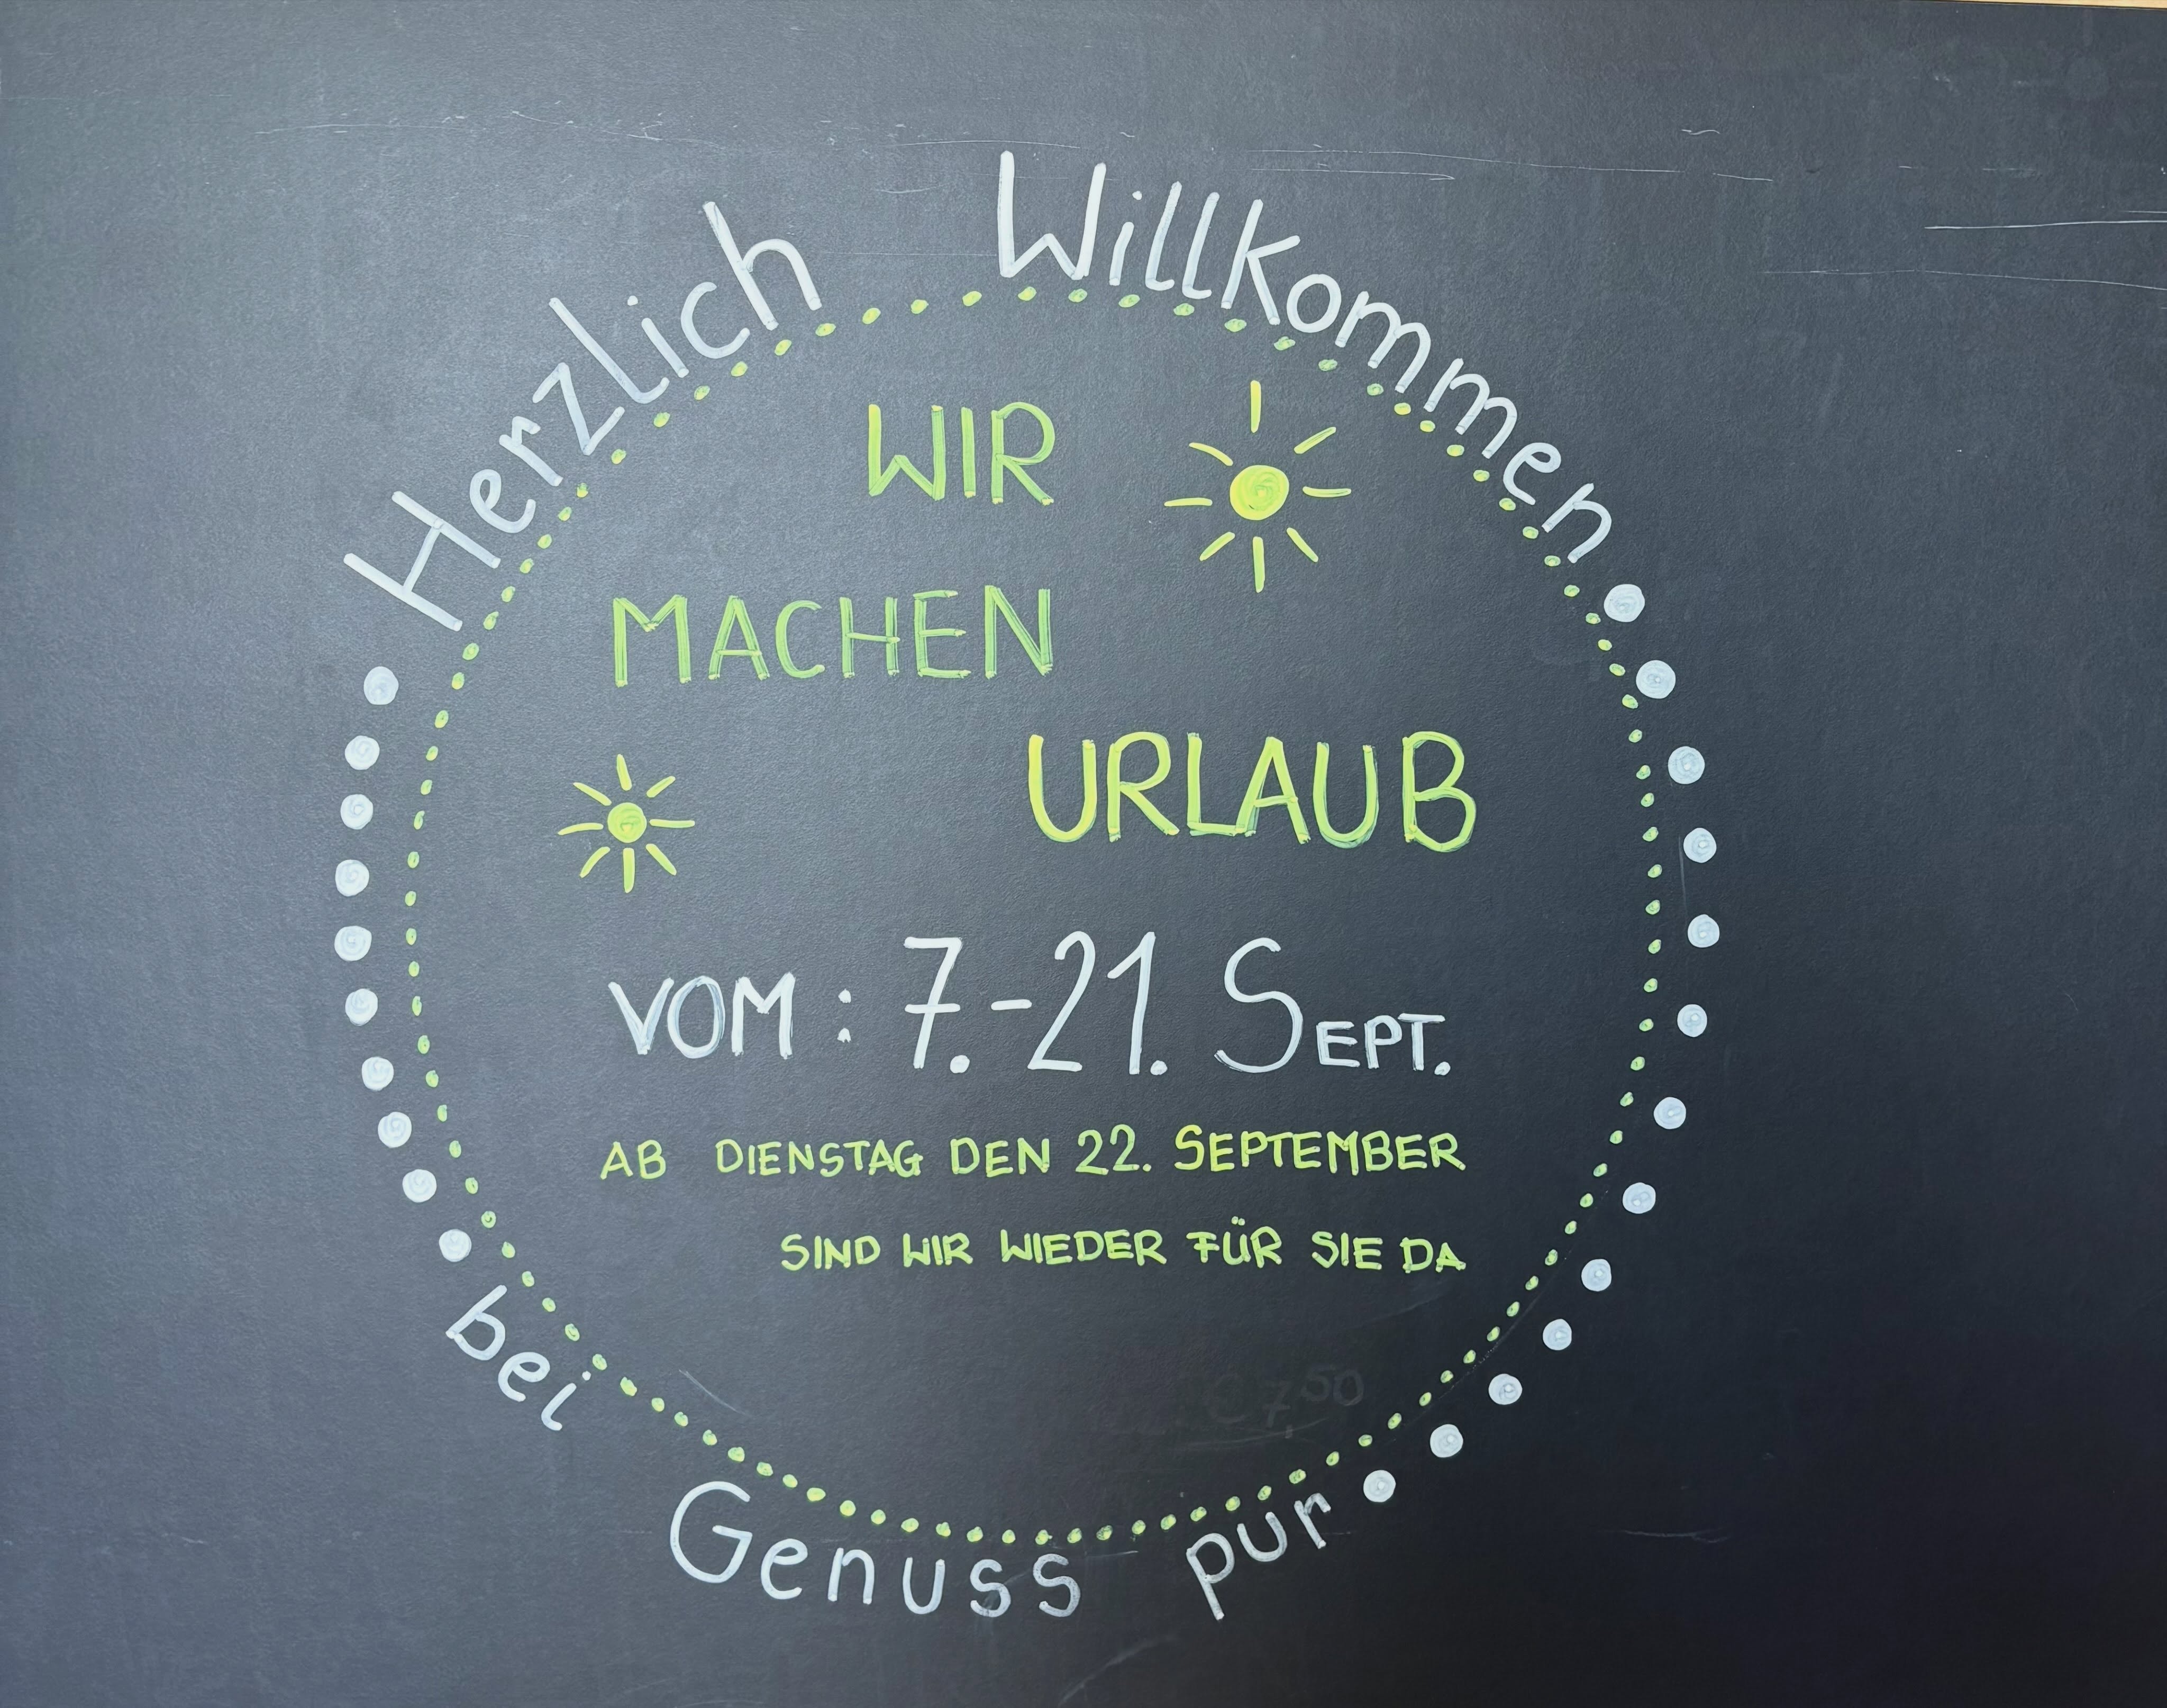 Herzlich Willkommen
WIR
MACHEN
URLAUB
VOM : 7.-21. SEPT.
AB DIENSTAG DEN 22. SEPTEMBER
SIND WIR WIEDER FÜR SIE DA
€ 7,50
bei Genuss pur